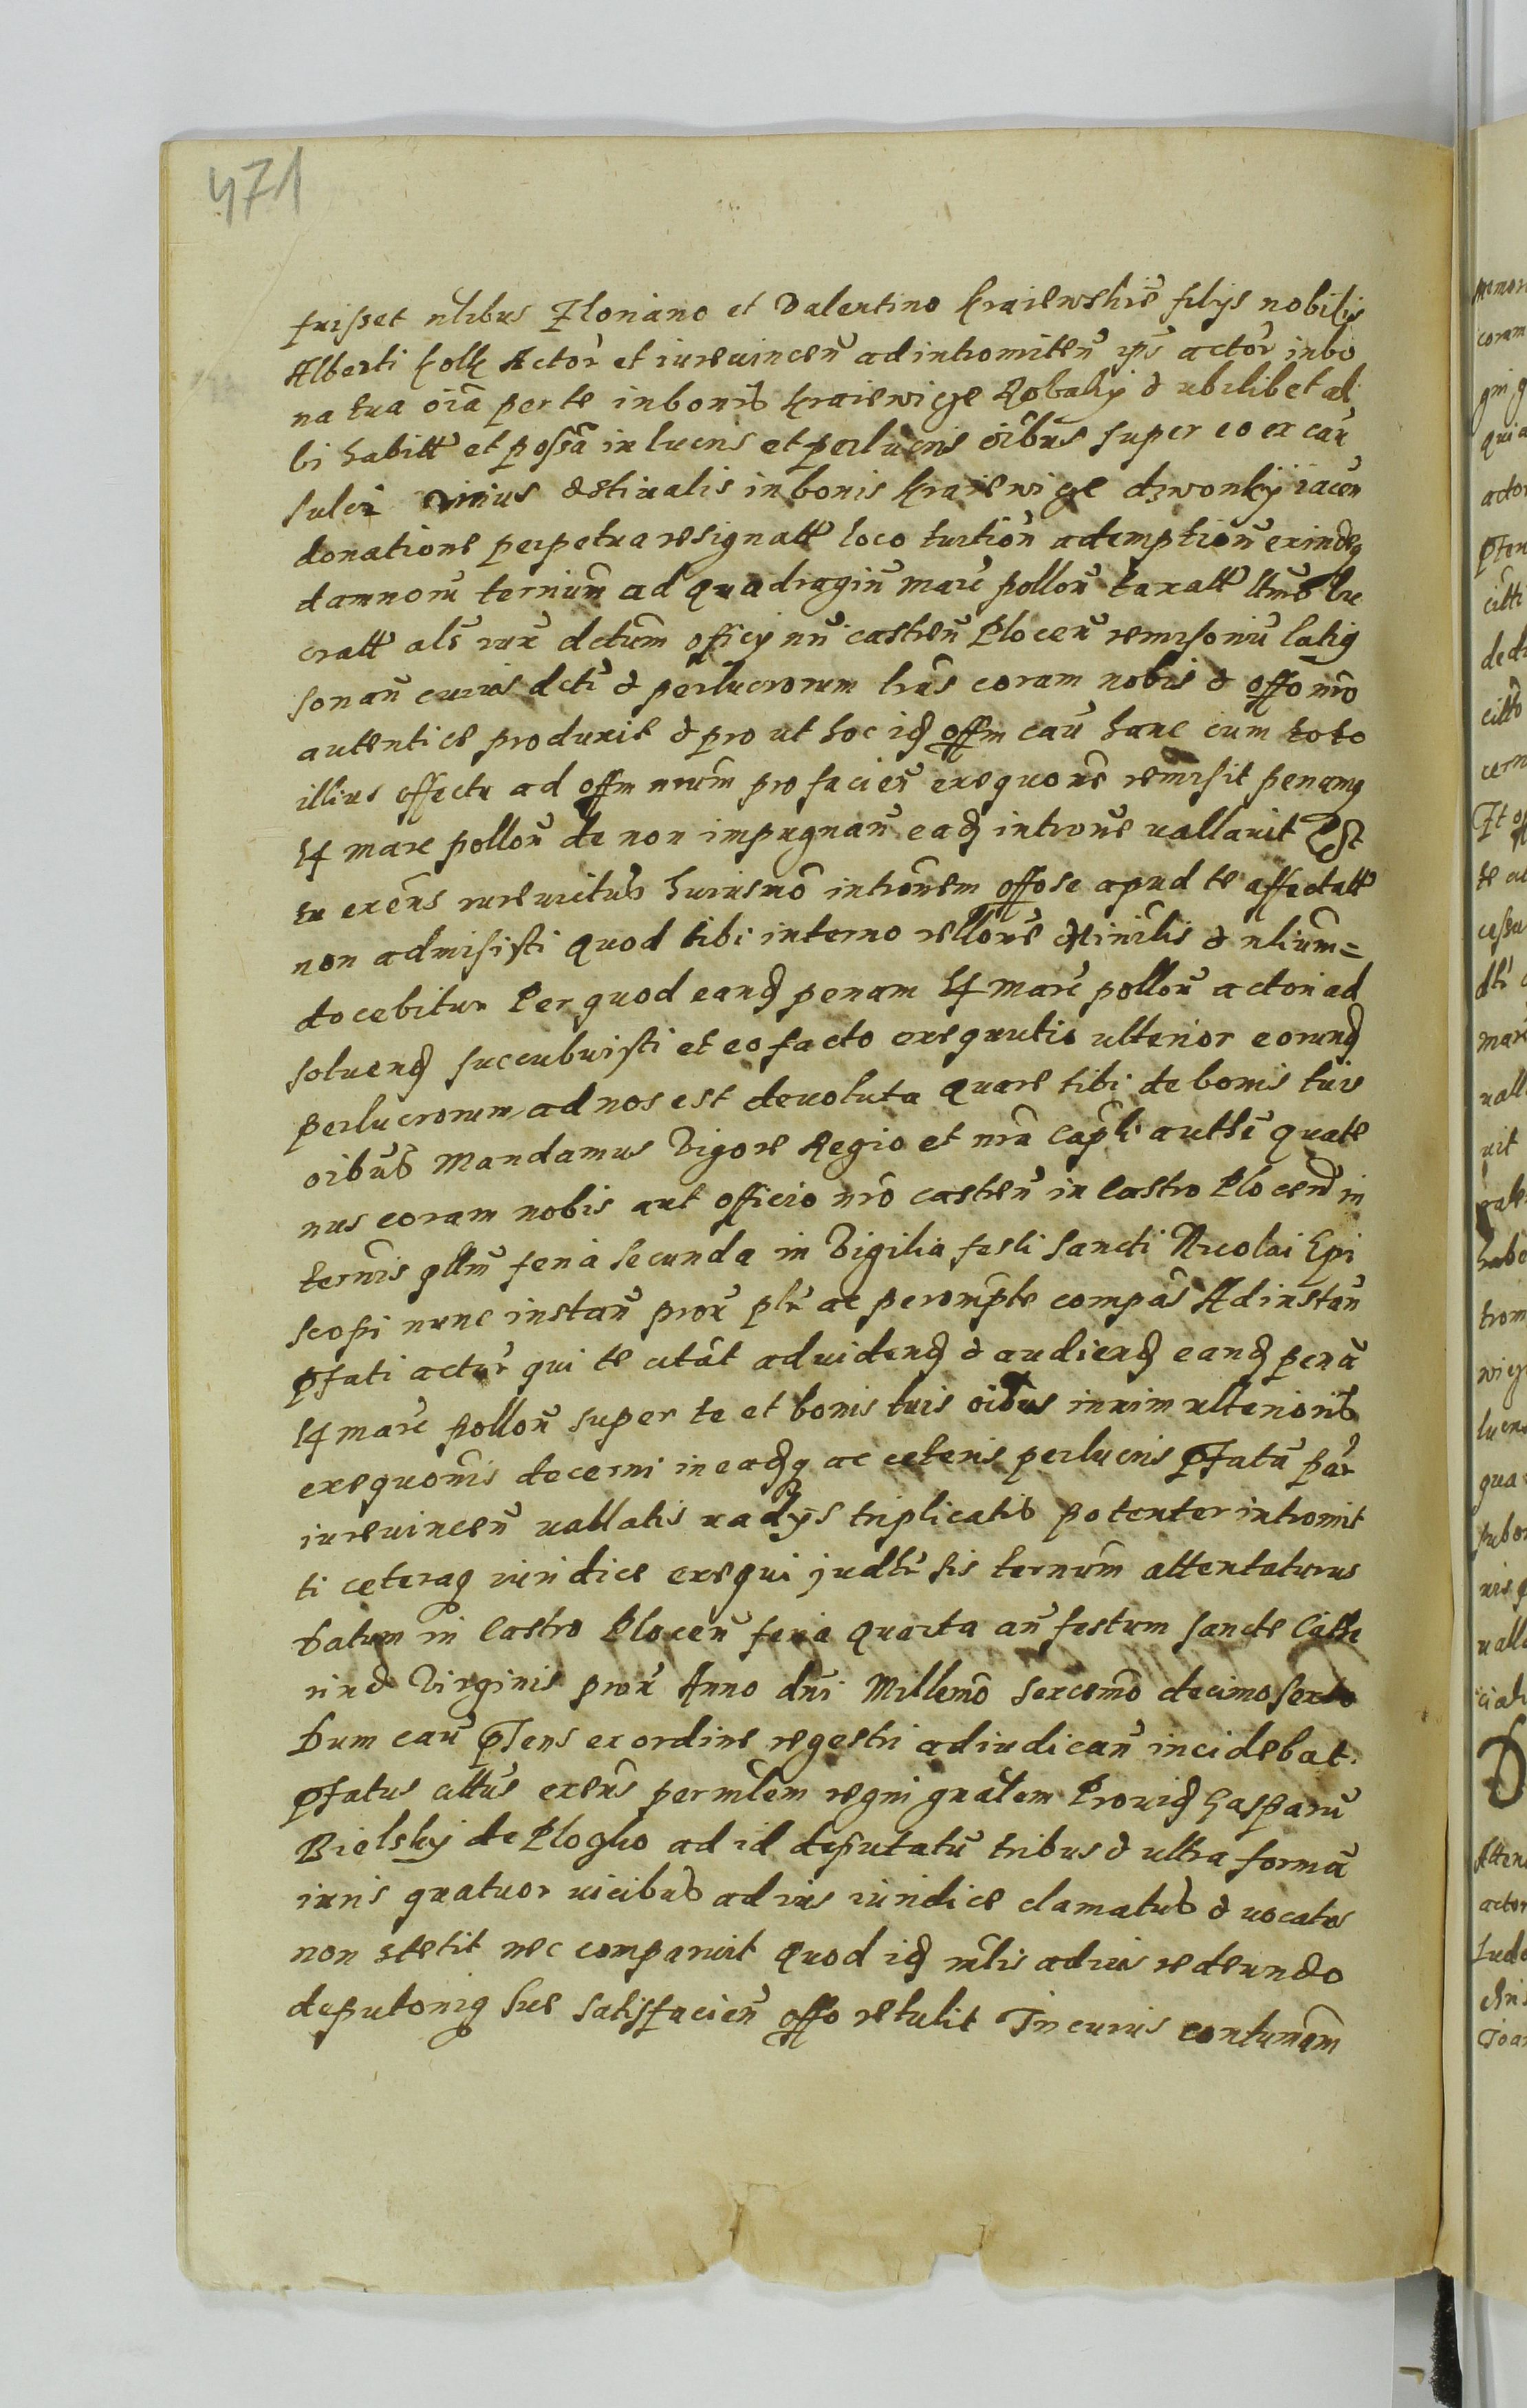 471
fuisset nłibus Floriano et Valentino Kraiewskie filys nobilis
Alberti Kolk Actor et iurevincen ad intromitten ips actor in bo
na tua oia per te in bonis Kraiewicze Robaky & ubilibet ali
bi habitt et possa in lucris et perlucris oibus super eo ex cau
sulci unius estivalis in bonis Kraiewicze dzwonky iacen
donatione perpetua resignatt loco tuition ademption exindeq
damnoru ternum ad quadragin marc pollon taxatt
cratt als iux dctum officy nri castren Plocen remissoriu latiq
sonan cuius dcti & perlucrorum lras coram nobis & offo nro
autentice produxit & pro ut hoc idq offm cau hanc cum toto
illius effectu ad offm nrum pro facien exequone remisit penamq
14 marc pollon de non impugnan eadq introne vallavit Et
tu exens iurevictus huiusmo intronem offose apud te affectatt
non admisisti quod tibi interno rellone Ministlis & nlium =
docebitur Per quod eandq penam 14 marc pollon actori ad
solvendq succubuisti et eo facto exequutio ulterior eorundq
perlucrorum ad nos est devoluta Quare tibi de bonis tuis
oibus Mandamus Vigore Regio et nra Capli authe quate
nus coram nobis aut officio nro castren in Castro Plocen in
terris qllu feria secunda in Vigilia festi Sancti Nicolai Epi
scopi nunc instan prox plr ac perompte compas Ad instan
pfati actor qui te citat ad videndq & audiendq eandq pena
14 marc pollon super te et bonis tuis oibus in vim ulterioris
exequonis decerni in eadqq ac ceteris perlucris pfatu par
iurevincen vallatis vadys triplicatis potenter intromit
ti ceteraq iuridice exequi judlr sis ternum attentaturus
Datum in Castro Plocen feria quarta an festum Sancte Cathe
rine Virginis prox Anno dni Millemo Sexcemo decimo sexto
Dum cau pfens ex ordine regestri adiudican incidebat.
pfatus cittus exens per mlem regni gnalem Providq Casparu
Bielsky de Plogko ad id deputatu tribus & ultra forma
iuris quatuor vicibus ad ius iuridice clamatus & vocatus
non stetit nec comparuit Quod idq mlis ad ius redeundo
deputoniq sue satisfacien offo retulit In cuius contumam